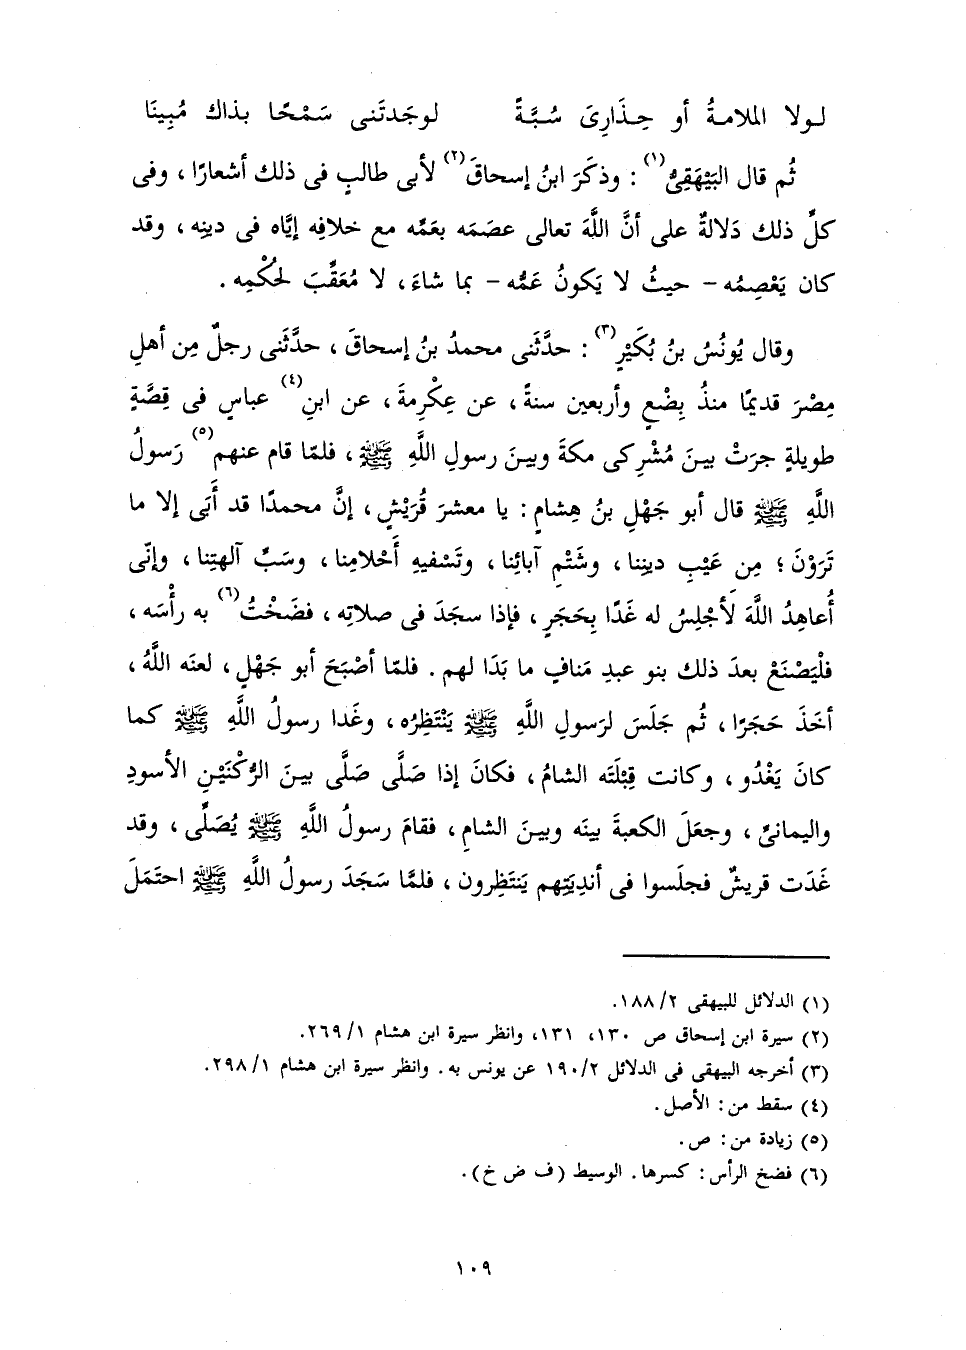 لـولا الملامـةُ أو حِـذَارِىَ سُـبَّـةً لوجَدتَنى سَمْحًا بذاك مُبِينَا
ثُم قال البَيْهَقِىُّ(١) : وذكَرَ ابنُ إسحاقَ(٢) لأبى طالبٍ فى ذلك أشعارًا ، وفى
كلِّ ذلك دَلالةٌ على أنَّ اللَّهَ تعالى عصَمَه بعَمِّه مع خلافِه إيَّاه فى دينِه ، وقد
كان يَعْصِمُه – حيثُ لا يَكونُ عَمُّه – بما شاءَ ، لا مُعَقِّبَ لحُكْمِه .
وقال يُونُسُ بنُ بُكَيْرٍ(٣) : حدَّثَنى محمدُ بنُ إسحاقَ ، حدَّثَنى رجلٌ مِن أهلِ
مِصْرَ قديمًا منذُ بِضْعٍ وأربعين سنةً ، عن عِكْرِمةَ ، عن ابنِ(٤) عباسٍ فى قِصَّةٍ
طويلةٍ جرَتْ بينَ مُشْرِكى مكةَ وبينَ رسولِ اللَّهِ ﷺ ، فلمّا قام عنهم(٥) رَسولُ
اللَّهِ ﷺ قال أبو جَهْلِ بنُ هِشامٍ : يا معشرَ قُرَيْشٍ ، إنَّ محمدًا قد أَبَى إلا ما
تَرَوْنَ ؛ مِن عَيْبِ دينِنا ، وشَتْمِ آبائِنا ، وتَسْفيهِ أَحْلامِنا ، وسَبِّ آلهتِنا ، وإنّى
أُعاهِدُ اللَّهَ لَأجْلِسُ له غَدًا بِحَجَرٍ ، فإذا سجَدَ فى صلاتِه ، فضَخْتُ(٦) به رأْسَه ،
فلْيَصْنَعْ بعدَ ذلك بنو عبدِ مَنافٍ ما بَدَا لهم . فلمّا أصْبَحَ أبو جَهْلٍ ، لعنَه اللَّهُ ،
أخَذَ حَجَرًا ، ثُم جَلَسَ لرَسولِ اللَّهِ ﷺ يَنْتَظِرُه ، وغَدا رسولُ اللَّهِ ﷺ كما
كانَ يَغْدُو ، وكانت قِبْلَتَه الشامُ ، فكانَ إذا صَلَّى صَلَّى بينَ الرُّكْنَيْنِ الأسودِ
واليمانىِّ ، وجعَلَ الكعبةَ بينَه وبينَ الشامِ ، فقامَ رسولُ اللَّهِ ﷺ يُصَلِّى ، وقد
غَدَت قريشٌ فجلَسوا فى أنديَتِهم يَنتَظِرون ، فلمَّا سَجَدَ رسولُ اللَّهِ ﷺ احتَمَلَ
(١) الدلائل للبيهقى ٢/ ١٨٨.
(٢) سيرة ابن إسحاق ص ١٣٠، ١٣١، وانظر سيرة ابن هشام ١/ ٢٦٩.
(٣) أخرجه البيهقى فى الدلائل ٢/ ١٩٠ عن يونس به. وانظر سيرة ابن هشام ١/ ٢٩٨.
(٤) سقط من : الأصل.
(٥) زيادة من : ص.
(٦) فضخ الرأس : كسرها. الوسيط (ف ض خ).
١٠٩